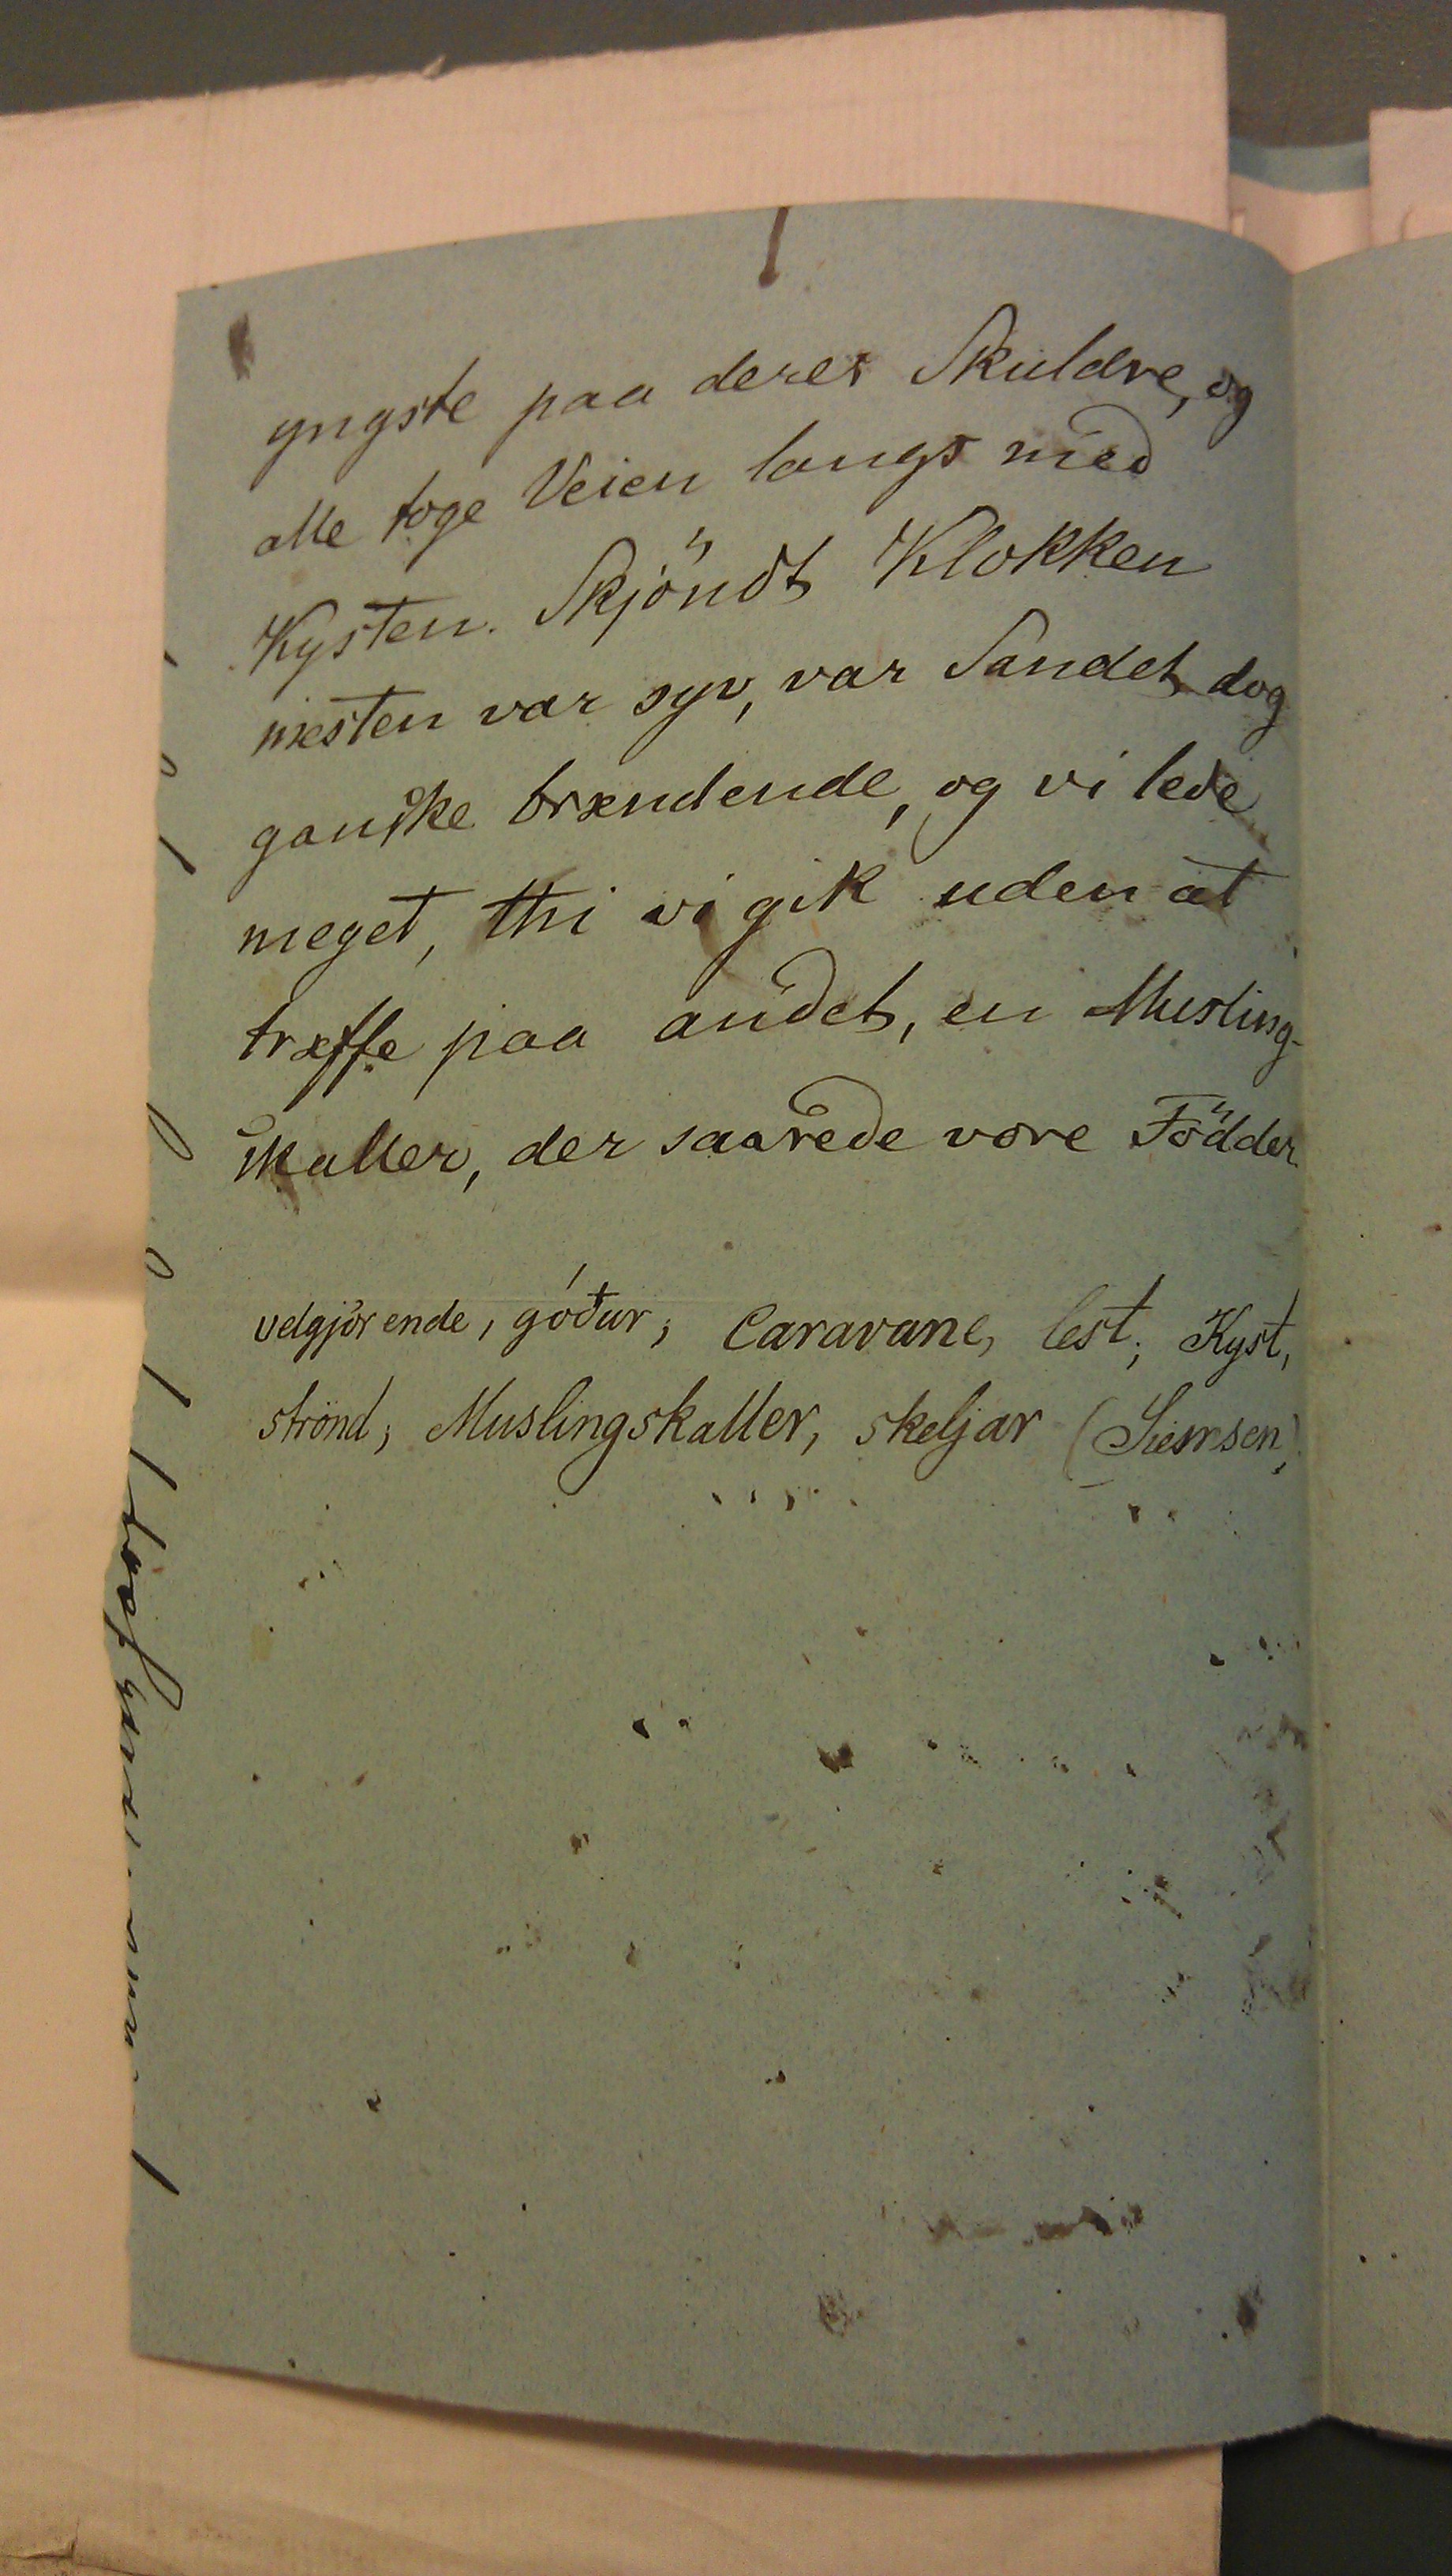 yngste paa deres Skuldre, og
alle toge Veien langs með
Kysten. Skjönðt Klokken
næsten var syv, var Sandet dog
ganske brændende, og vi leðe
meget, thi vi gik uden at
træffe paa andet, en Musling-
skaller, der saareðe vore Födder
velgjörende, góður; Caravane, lest; Kyst,
strönd; Muslingskaller, skeljar (Siemsen)